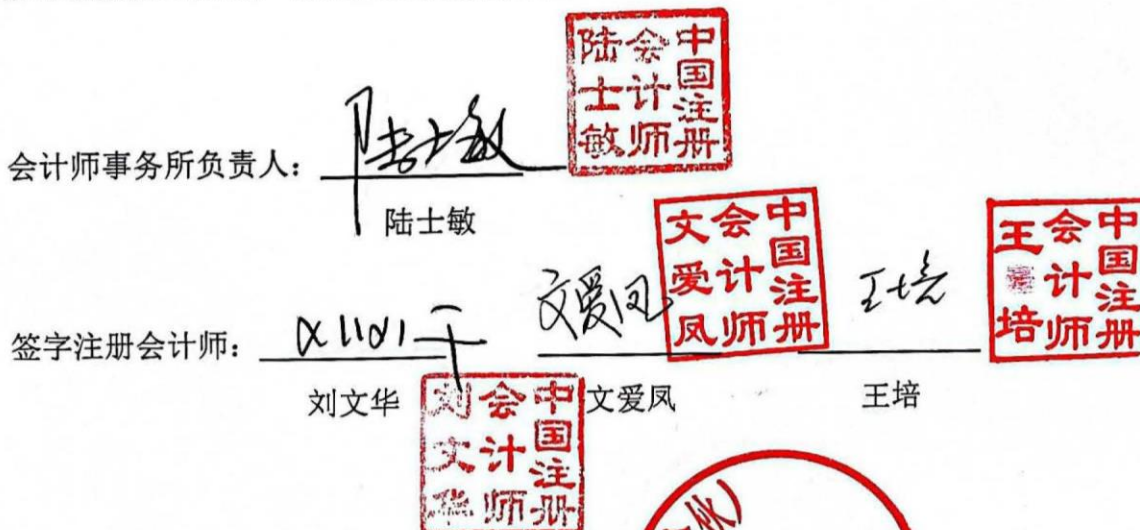 中国注册会计师陆士敏
会计师事务所负责人：
陆士敏
陆士敏
中国注册会计师文爱凤
中国注册会计师王培
签字注册会计师：
文爱凤
王培
刘文华
文爱凤
王培
中国注册会计师刘文华